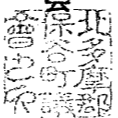 北多摩郡
保谷町議
會之印